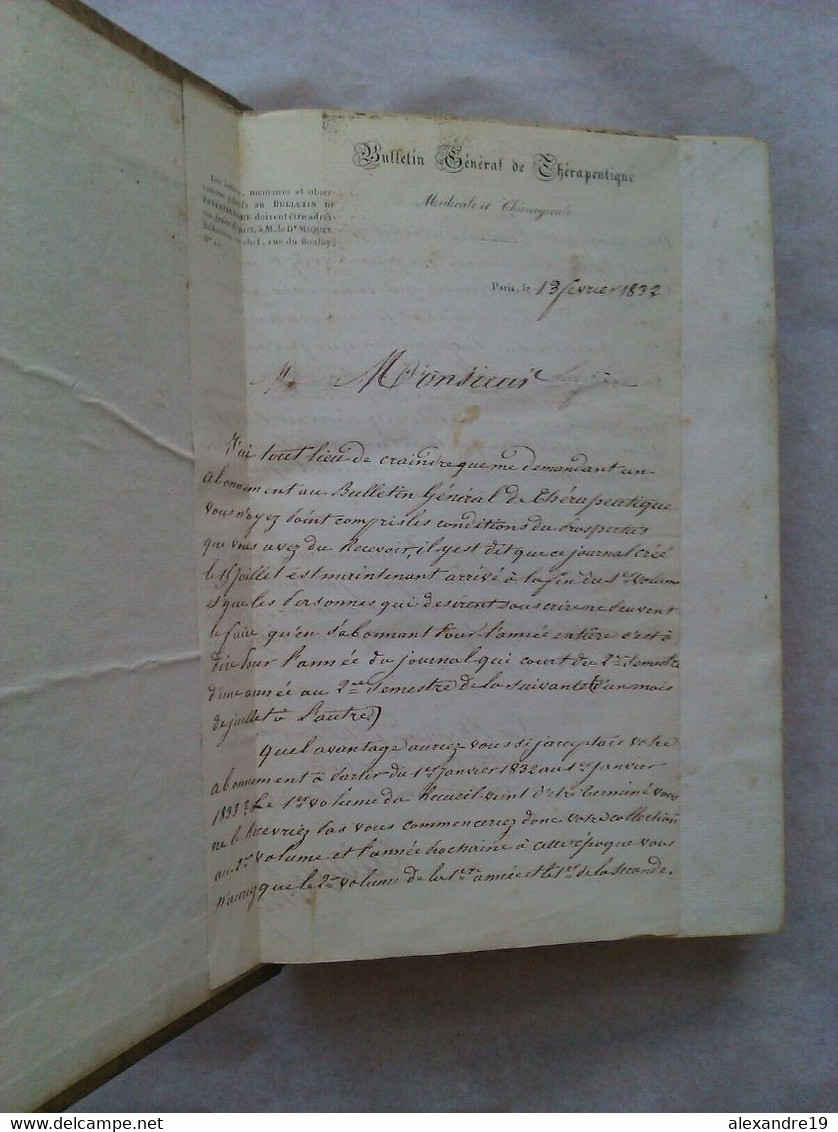 Bulletin Général de Thérapeutique
Médicale et Chirurgicale
Les mémoires et obser-
au BULLETIN DE
doivent être adres-
à M. le Dr MIQUEL,
chef, rue du Bouloy,
Paris, le 13 fevrier 1832
Monsieur
J'ai tout lieu de craindre que me demandant un
abonnement au Bulletin Général de Thérapeutique
vous n'ayez point compris les conditions du prospectus
que vous avez du Recevoir, il y est dit que ce journal créé
le 15 Juillet est maintenant arrivé à la fin du 1er volume
que les personnes qui desirent souscrire ne peuvent
le faire qu'en s'abonnant pour l'année entière c'est à
dire pour l'année du journal qui court du 2me semestre
d'une année au 2me semestre de la suivante (d'un mois
de juillet à l'autre)
Quel avantage auriez-vous si j'acceptais votre
abonnement à partir du 1er Janvier 1832 au 1er Janvier
1833? Le 1er volume du Recueil vient d'être terminé vous
ne le Recevriez pas vous commenceriez donc votre collection
au volume et l'année prochaine à cette époque vous
n'auriez que le 2me volume de la 1ère année et le 1er de la seconde.
www.delcampe.net
alexandre19